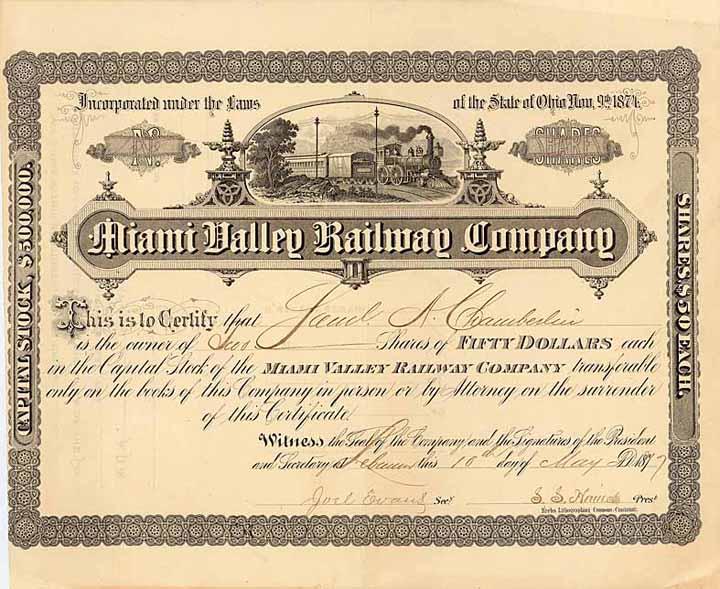 Incorporated under the Laws of the State of Ohio Nov. 9th 1874.
No.
SHARES
Miami Valley Railway Company
CAPITAL STOCK, $500,000.
SHARES $50 EACH.
This is to Certify that Saml. A. Chamberlin
is the owner of Two Shares of FIFTY DOLLARS each
in the Capital Stock of the MIAMI VALLEY RAILWAY COMPANY transferable
only on the books of this Company in person or by Attorney on the surrender
of this Certificate
Witness the Seal of the Company and the Signatures of the President
and Secretary at Lebanon this 10th day of May AD 1877
Joel Evans Secy.
S. S. Haines Prest
Krebs Lithographing Company Cincinnati.